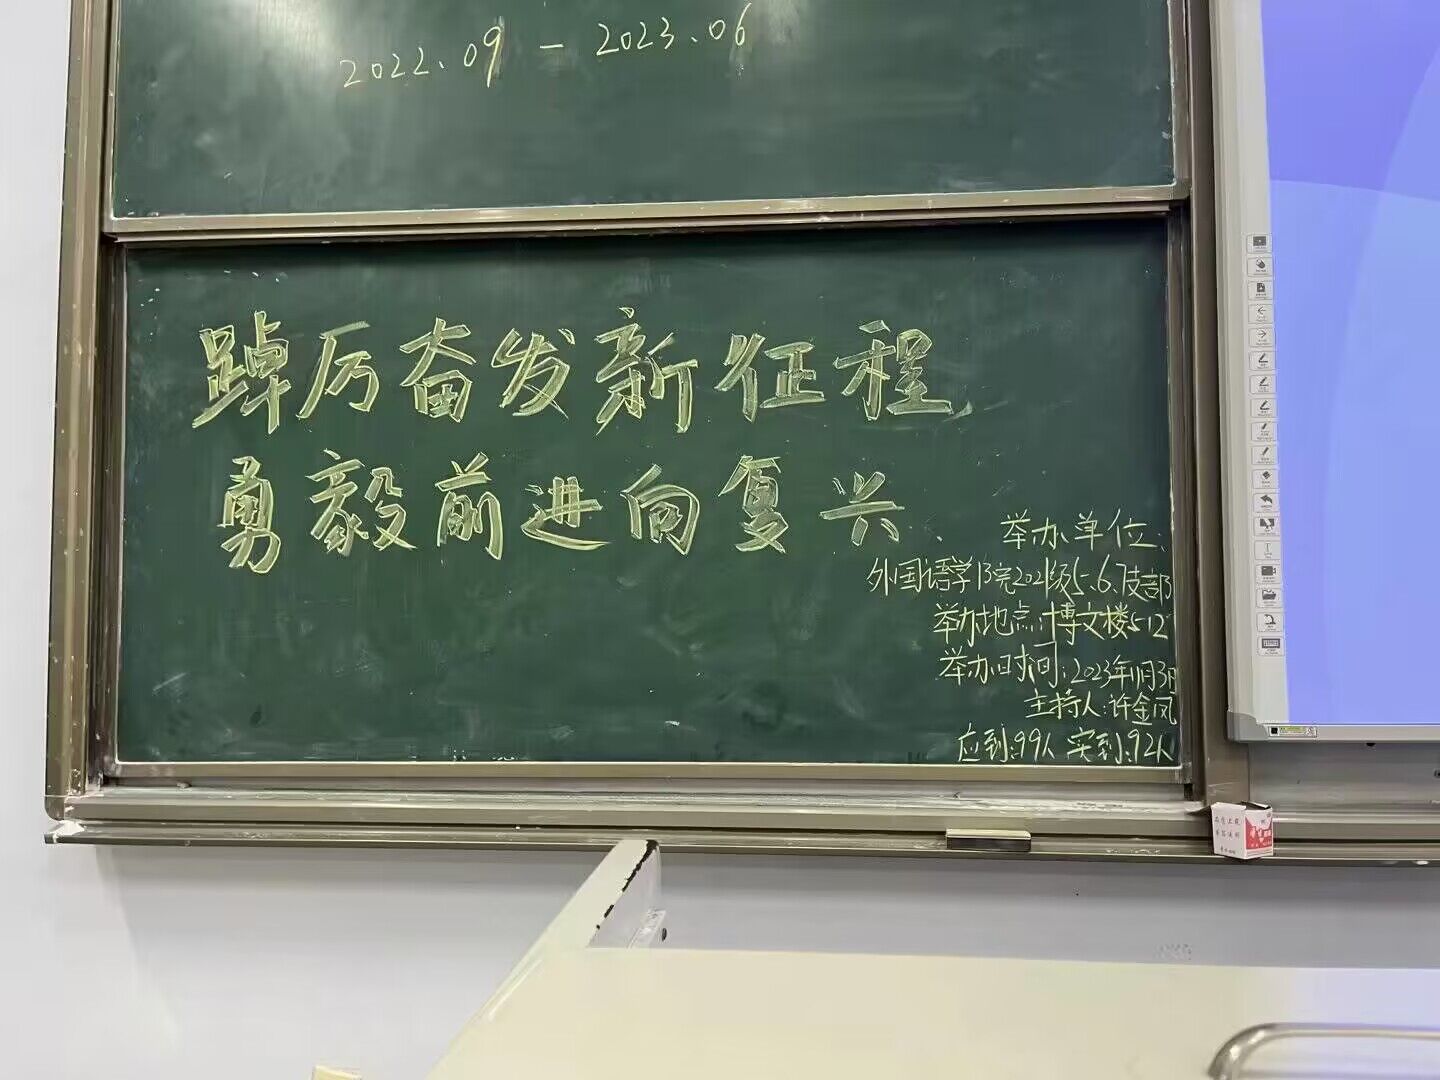 2022.09 - 2023.06
踔厉奋发新征程,
勇毅前进向复兴.
举办单位:
外国语学院2021级5.6.7支部
举办地点:博文楼512
举办时间:2023年11月3日
主持人:许金凤
应到:99人 实到:92人